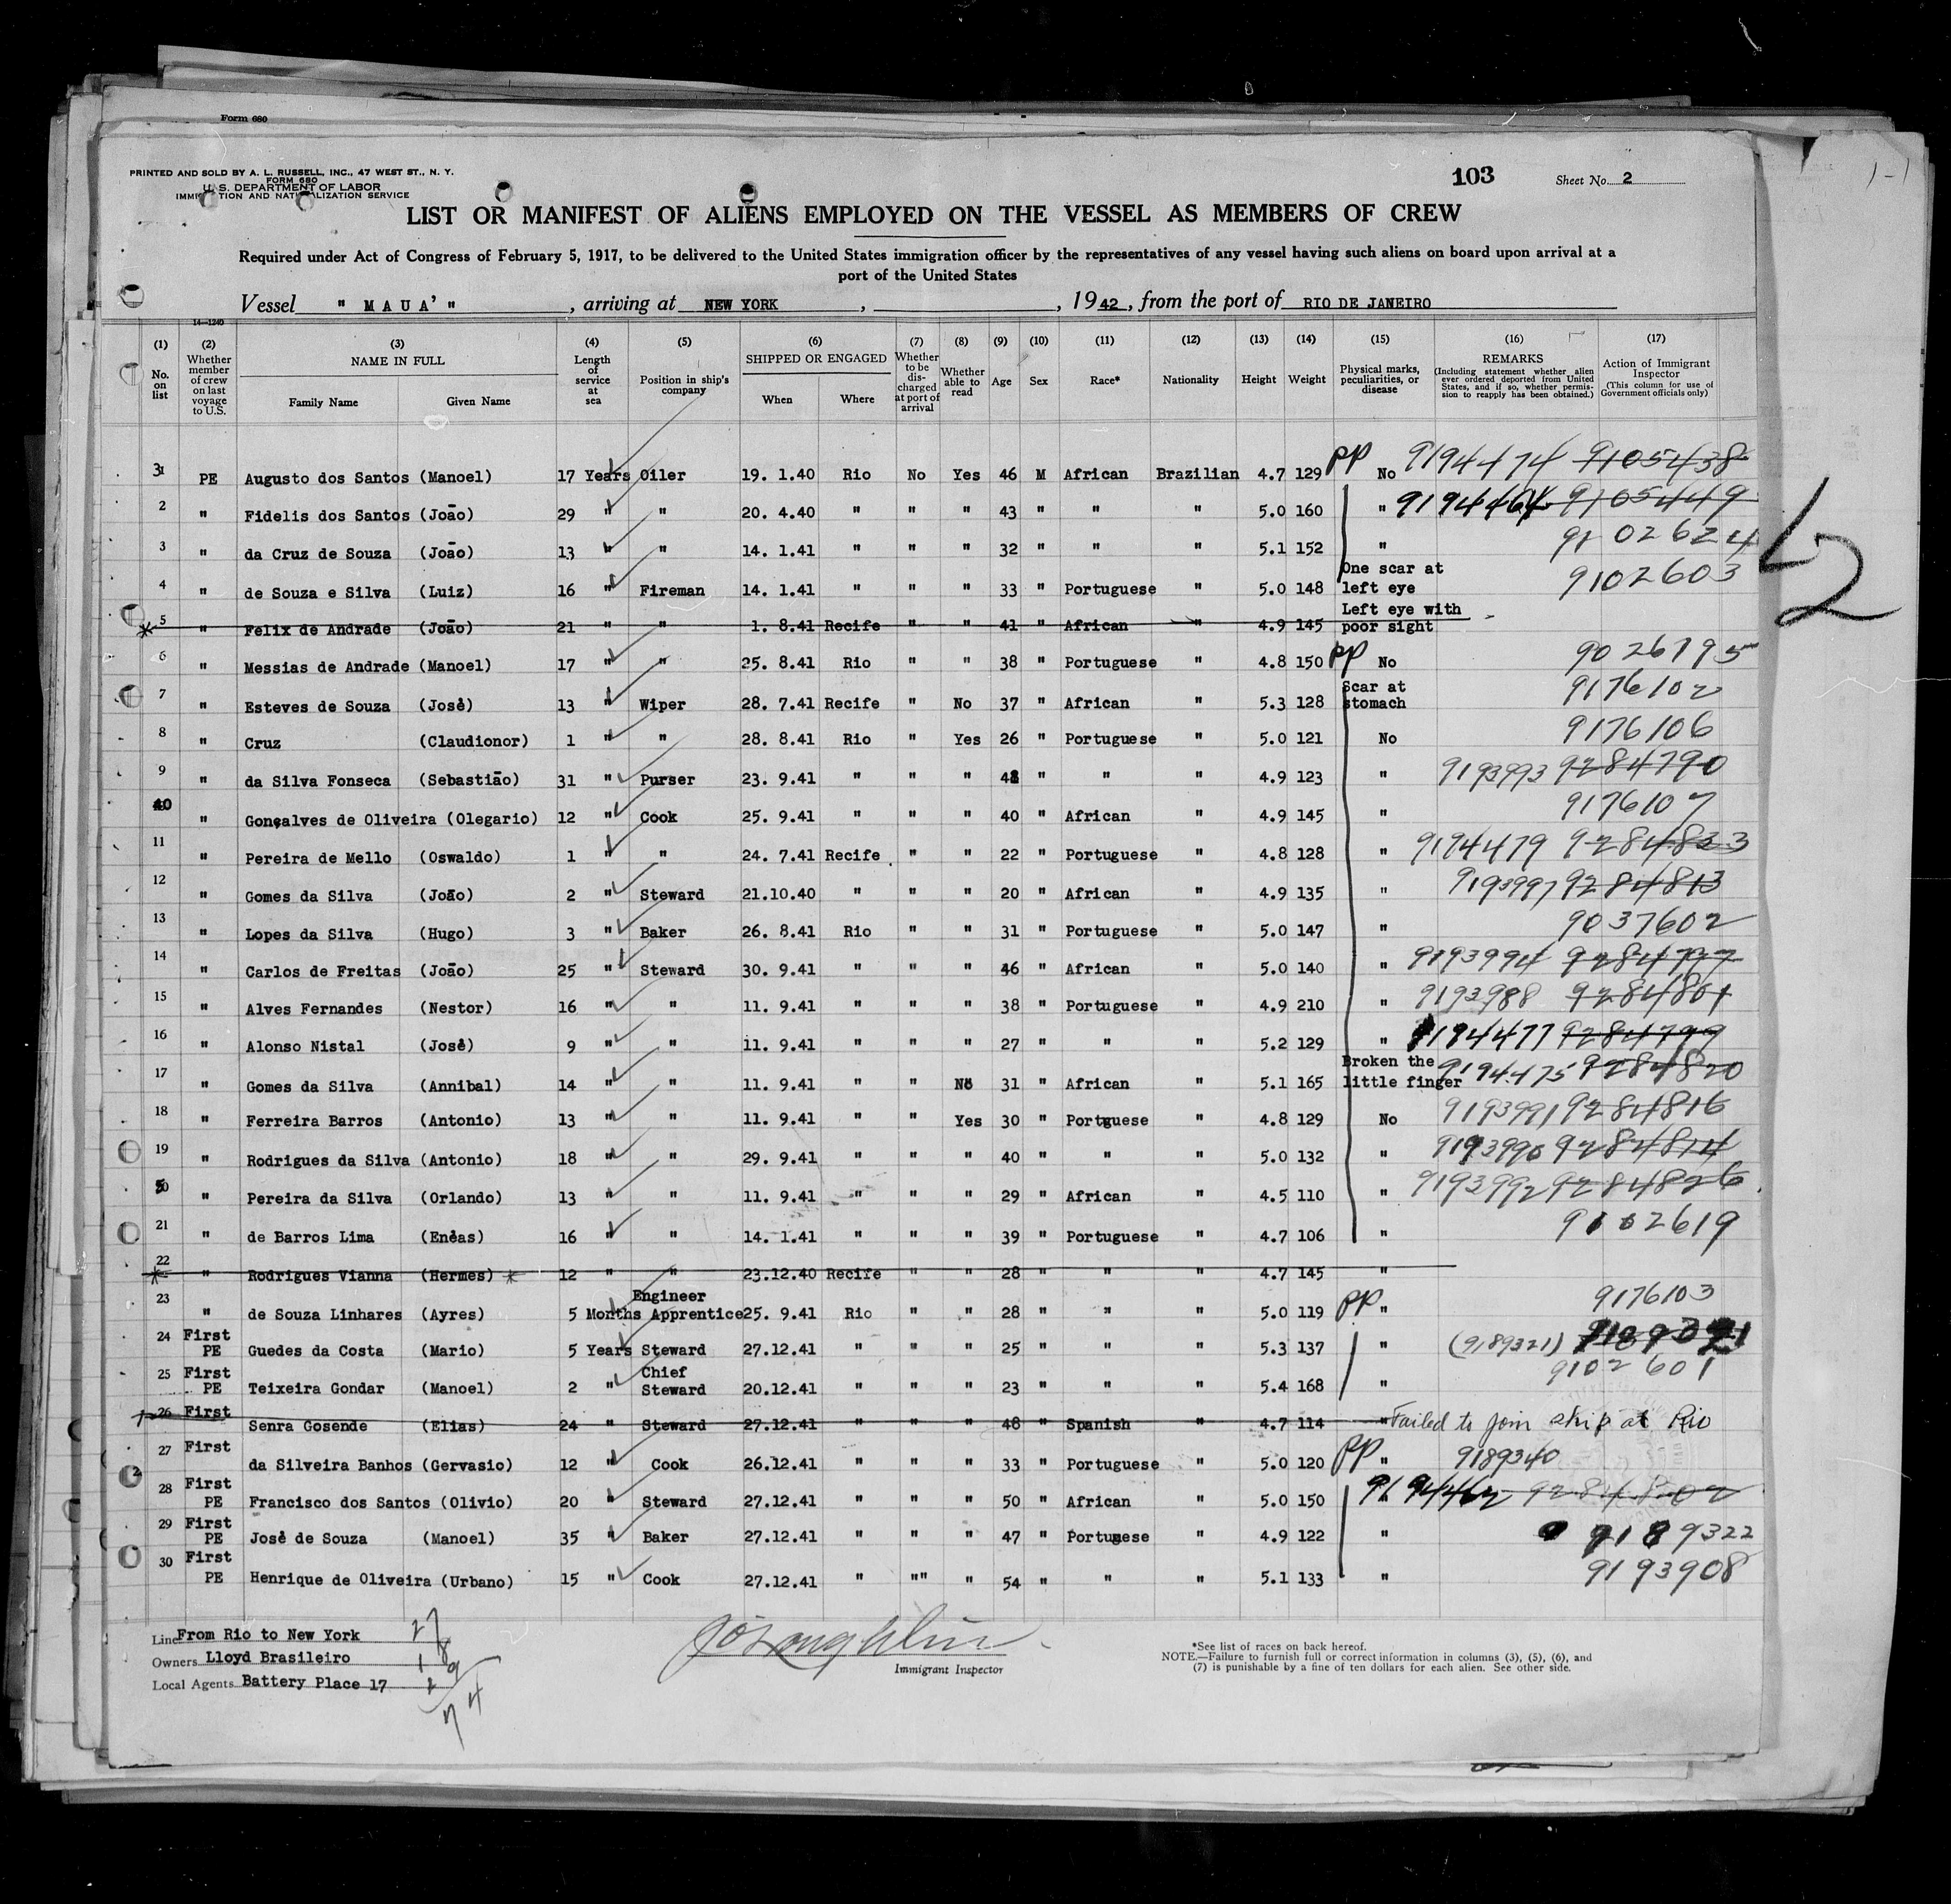 Form 680
PRINTED AND SOLD BY A. L. RUSSELL, INC., 47 WEST ST., N. Y.
FORM 680
U. S. DEPARTMENT OF LABOR
IMMI TION AND NAT LIZATION SERVICE
103 Sheet No. 2
LIST OR MANIFEST OF ALIENS EMPLOYED ON THE VESSEL AS MEMBERS OF CREW
Required under Act of Congress of February 5, 1917, to be delivered to the United States immigration officer by the representatives of any vessel having such aliens on board upon arrival at a
port of the United States
Vessel " M A U A' " , arriving at NEW YORK , , 1942, from the port of RIO DE JANEIRO
14—1240
(1) No. on list (2) Whether member of crew on last voyage to U.S. (3) NAME IN FULL Family Name Given Name (4) Length of service at sea (5) Position in ship's company (6) SHIPPED OR ENGAGED When Where (7) Whether to be discharged at port of arrival (8) Whether able to read (9) Age (10) Sex (11) Race* (12) Nationality (13) Height (14) Weight (15) Physical marks, peculiarities, or disease (16) REMARKS (Including statement whether alien ever ordered deported from United States, and if so, whether permission to reapply has been obtained.) (17) Action of Immigrant Inspector (This column for use of Government officials only)
31 PE Augusto dos Santos (Manoel) 17 Years Oiler 19. 1.40 Rio No Yes 46 M African Brazilian 4.7 129 PP No 9194474 9105438
2 " Fidelis dos Santos (João) 29 " " 20. 4.40 " " " 43 " " " 5.0 160 " 9194464 9105449
3 " da Cruz de Souza (João) 13 " " 14. 1.41 " " " 32 " " " 5.1 152 " 9102624
4 " de Souza e Silva (Luiz) 16 " Fireman 14. 1.41 " " " 33 " Portuguese " 5.0 148 One scar at left eye 9102603
5 " Felix de Andrade (João) 21 " " 1. 8.41 Recife " " 41 " African " 4.9 145 Left eye with poor sight
6 " Messias de Andrade (Manoel) 17 " " 25. 8.41 Rio " " 38 " Portuguese " 4.8 150 PP No 9026795
7 " Esteves de Souza (José) 13 " Wiper 28. 7.41 Recife " No 37 " African " 5.3 128 Scar at stomach 9176102
8 " Cruz (Claudionor) 1 " " 28. 8.41 Rio " Yes 26 " Portuguese " 5.0 121 No 9176106
9 " da Silva Fonseca (Sebastião) 31 " Purser 23. 9.41 " " " " " " 4.9 123 " 9193993 9284790
40 " Gonçalves de Oliveira (Olegario) 12 " Cook 25. 9.41 " " " 40 " African " 4.9 145 " 9176107
11 " Pereira de Mello (Oswaldo) 1 " " 24. 7.41 Recife " " 22 " Portuguese " 4.8 128 " 9194479 9284833
12 " Gomes da Silva (João) 2 " Steward 21.10.40 " " " 20 " African " 4.9 135 " 9193997 9284813
13 " Lopes da Silva (Hugo) 3 " Baker 26. 8.41 Rio " " 31 " Portuguese " 5.0 147 " 9037602
14 " Carlos de Freitas (João) 25 " Steward 30. 9.41 " " " 46 " African " 5.0 140 " 9193994 9284797
15 " Alves Fernandes (Nestor) 16 " " 11. 9.41 " " " 38 " Portuguese " 4.9 210 " 9193988 9284801
16 " Alonso Nistal (José) 9 " " 11. 9.41 " " " 27 " " " 5.2 129 " 9194477 9284799
17 " Gomes da Silva (Annibal) 14 " " 11. 9.41 " " No 31 " African " 5.1 165 Broken the little finger 9194475 9284820
18 " Ferreira Barros (Antonio) 13 " " 11. 9.41 " " Yes 30 " Portguese " 4.8 129 No 9193991 9284816
19 " Rodrigues da Silva (Antonio) 18 " " 29. 9.41 " " " 40 " " " 5.0 132 " 9193990 9284814
50 " Pereira da Silva (Orlando) 13 " " 11. 9.41 " " " 29 " African " 4.5 110 " 9193992 9284826
21 " de Barros Lima (Enéas) 16 " " 14. 1.41 " " " 39 " Portuguese " 4.7 106 " 9102619
22 " Rodrigues Vianna (Hermes) 12 " " 23.12.40 Recife " " 28 " " " 4.7 145 "
23 " de Souza Linhares (Ayres) 5 Months Engineer Apprentice 25. 9.41 Rio " " 28 " " " 5.0 119 PP " 9176103
24 First PE Guedes da Costa (Mario) 5 Years Steward 27.12.41 " " " 25 " " " 5.3 137 " (9189321)
25 First PE Teixeira Gondar (Manoel) 2 " Chief Steward 20.12.41 " " " 23 " " " 5.4 168 " 9102601
26 First Senra Gosende (Elias) 24 " Steward 27.12.41 " " " 48 " Spanish " 4.7 114 " Failed to join ship at Rio
27 First da Silveira Banhos (Gervasio) 12 " Cook 26.12.41 " " " 33 " Portuguese " 5.0 120 PP " 9189340
28 First PE Francisco dos Santos (Olivio) 20 " Steward 27.12.41 " " " 50 " African " 5.0 150 " 9194462 9284802
29 First PE José de Souza (Manoel) 35 " Baker 27.12.41 " " " 47 " Portugese " 4.9 122 " 9189322
30 First PE Henrique de Oliveira (Urbano) 15 " Cook 27.12.41 " "" " 54 " " " 5.1 133 " 9193908
Line From Rio to New York
Owners Lloyd Brasileiro
Local Agents Battery Place 17
Immigrant Inspector
*See list of races on back hereof.
NOTE.—Failure to furnish full or correct information in columns (3), (5), (6), and
(7) is punishable by a fine of ten dollars for each alien. See other side.